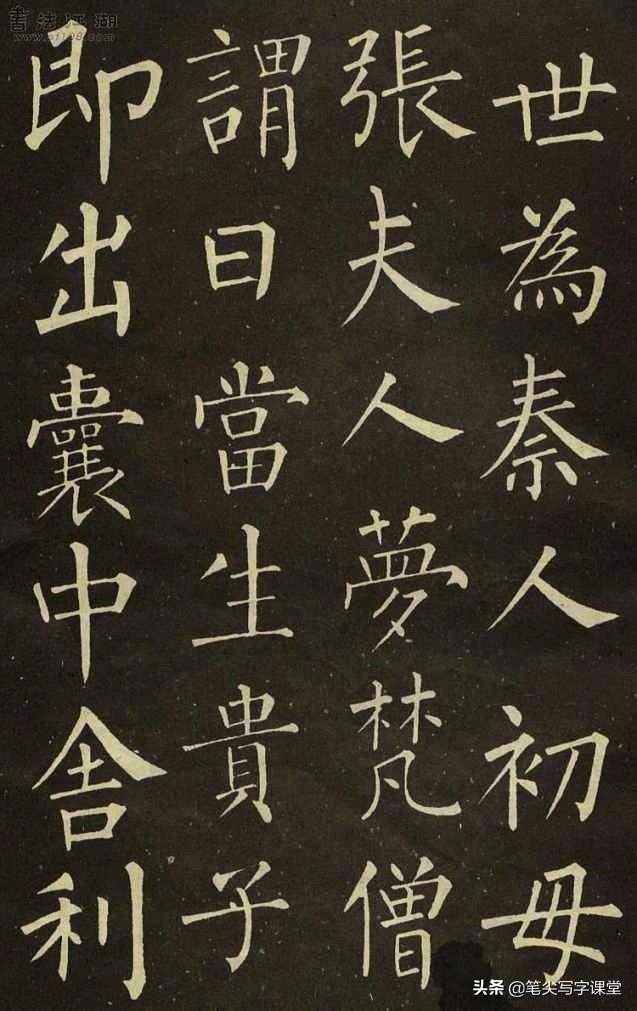 世為秦人初母
張夫人夢梵僧
謂曰當生貴子
即出囊中舍利
書法江湖
www.sf108.com
头条 @笔尖写字课堂